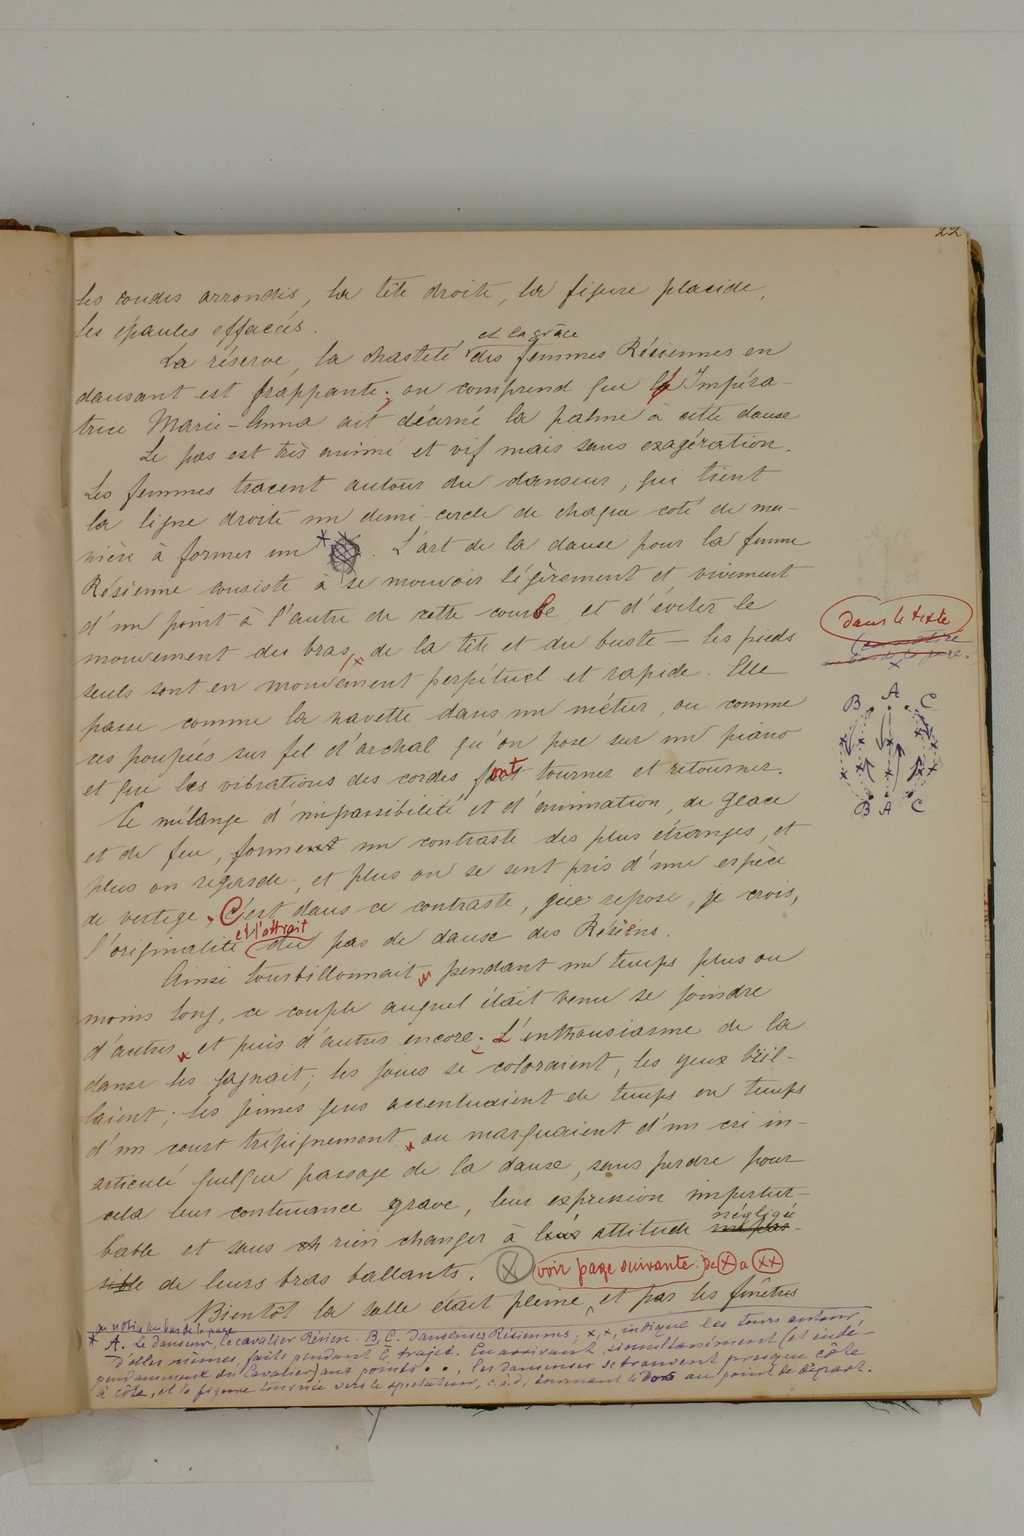 22
les coudes arrondis, la tête droite, la figure placide,
les épaules effacées.
et la grâce
La réserve, la chasteté des femmes Résiennes en
dansant est frappante; on comprend que l'Impéra-
trice Marie-Anna ait décerné la palme à cette danse
Le pas est très animé et vif mais sans exagération.
Les femmes tracent autour du danseur, qui tient
la ligne droite un demi-cercle de chaque coté de ma-
nière à former un * . L'art de la danse pour la femme
Résienne consiste à se mouvoir légèrement et vivement
d'un point à l'autre de cette courbe et d'éviter le
mouvement des bras, de la tête et du buste — les pieds
seuls sont en mouvement perpétuel et rapide. Elle
passe comme la navette dans un métier, ou comme
ces poupées sur fil d'archal qu'on pose sur un piano
et que les vibrations des cordes font tourner et retourner.
Ce mélange d'impassibilité et d'animation, de glace
et de feu, forment un contraste des plus étranges, et
plus on regarde, et plus on se sent pris d'une espèce
de vertige, C'est dans ce contraste, que repose, je crois,
et l'attrait
l'originalité du pas de danse des Résiens.
Ainsi tourbillonnait, pendant un temps plus ou
moins long, ce couple auquel était venu se joindre
d'autres, et puis d'autres encore; L'enthousiasme de la
danse les gagnait; les joues se coloraient, les yeux bril-
laient; les jeunes gens accentuaient de temps en temps
d'un court trépignement, ou marquaient d'un cri in-
articulé quelque passage de la danse, sans perdre pour
cela leur contenance grave, leur expression impertur-
négligé
bable, et sans rien changer à leur attitude
de leurs bras ballants. X voir page suivante. De X a XX
Bientôt la salle était pleine, et par les fenêtres
au bas de la page
* A. Le danseur, le cavalier Résien. B, C. danseuses Résiennes; x, x, indique les tours autour
d'elles mêmes, faits pendant le trajet. En arrivant, simultanément (et indé-
pendamment du Cavalier) aux points • •, les danseuses se trouvent presque côte
à côte, et la figure tournée vers le spectateur, c. à d. tournant le dos au point de départ.
Dans le texte
B A C
B A C